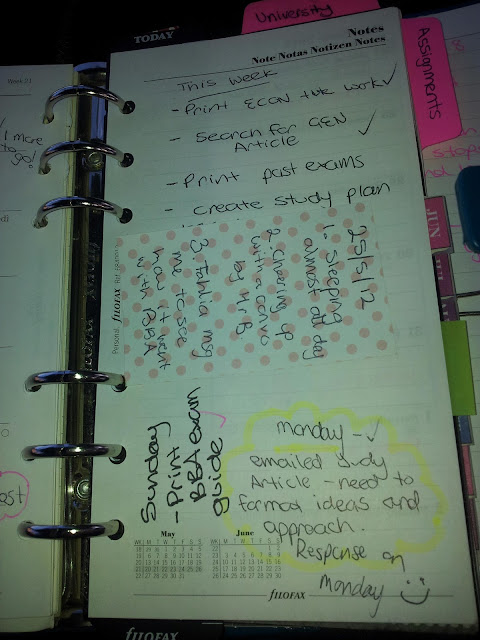 University
TODAY
Assignments
Notes
Note Notas Notizen Notes
Week 21
1 more
to go!
This week
- Print ECON tute work ✓
- Search for GEN
Article ✓
- Print past exams
- create study plan
25/5/12
1. Sleeping
almost all day
2. Cheering up
with a convo
by Mr B.
me to see
how it went
with BBA
Personal
filofax
Sunday
- Print
BBA exam
guide
monday - ✓
emailed study
Article - need to
format ideas and
approach.
Response on
Monday :)
May
June
filofax
JUN
filofax